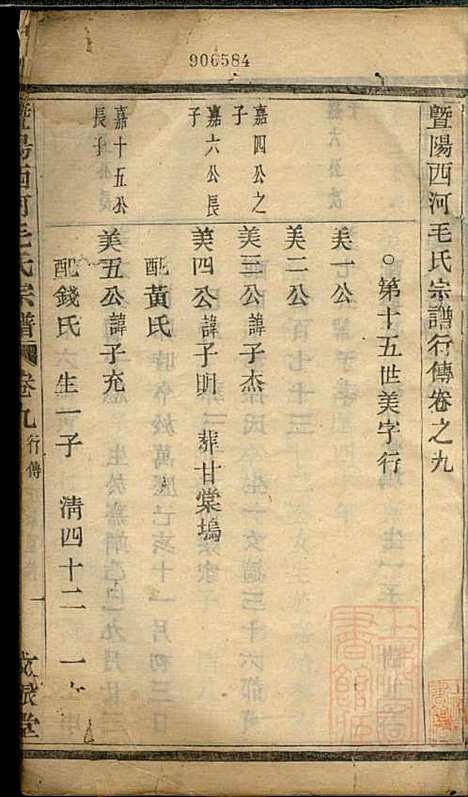 906584
暨陽西河毛氏宗譜行傳卷之九
○第十五世美字行
美一公
美二公
嘉四公之子
美三公諱子杰
嘉六公長子
美四公諱子明 葬甘棠塢
配黃氏
嘉十五公長子
美五公諱子充
配錢氏 生一子 清四十二
暨陽西河毛氏宗譜 卷九 行傳 一